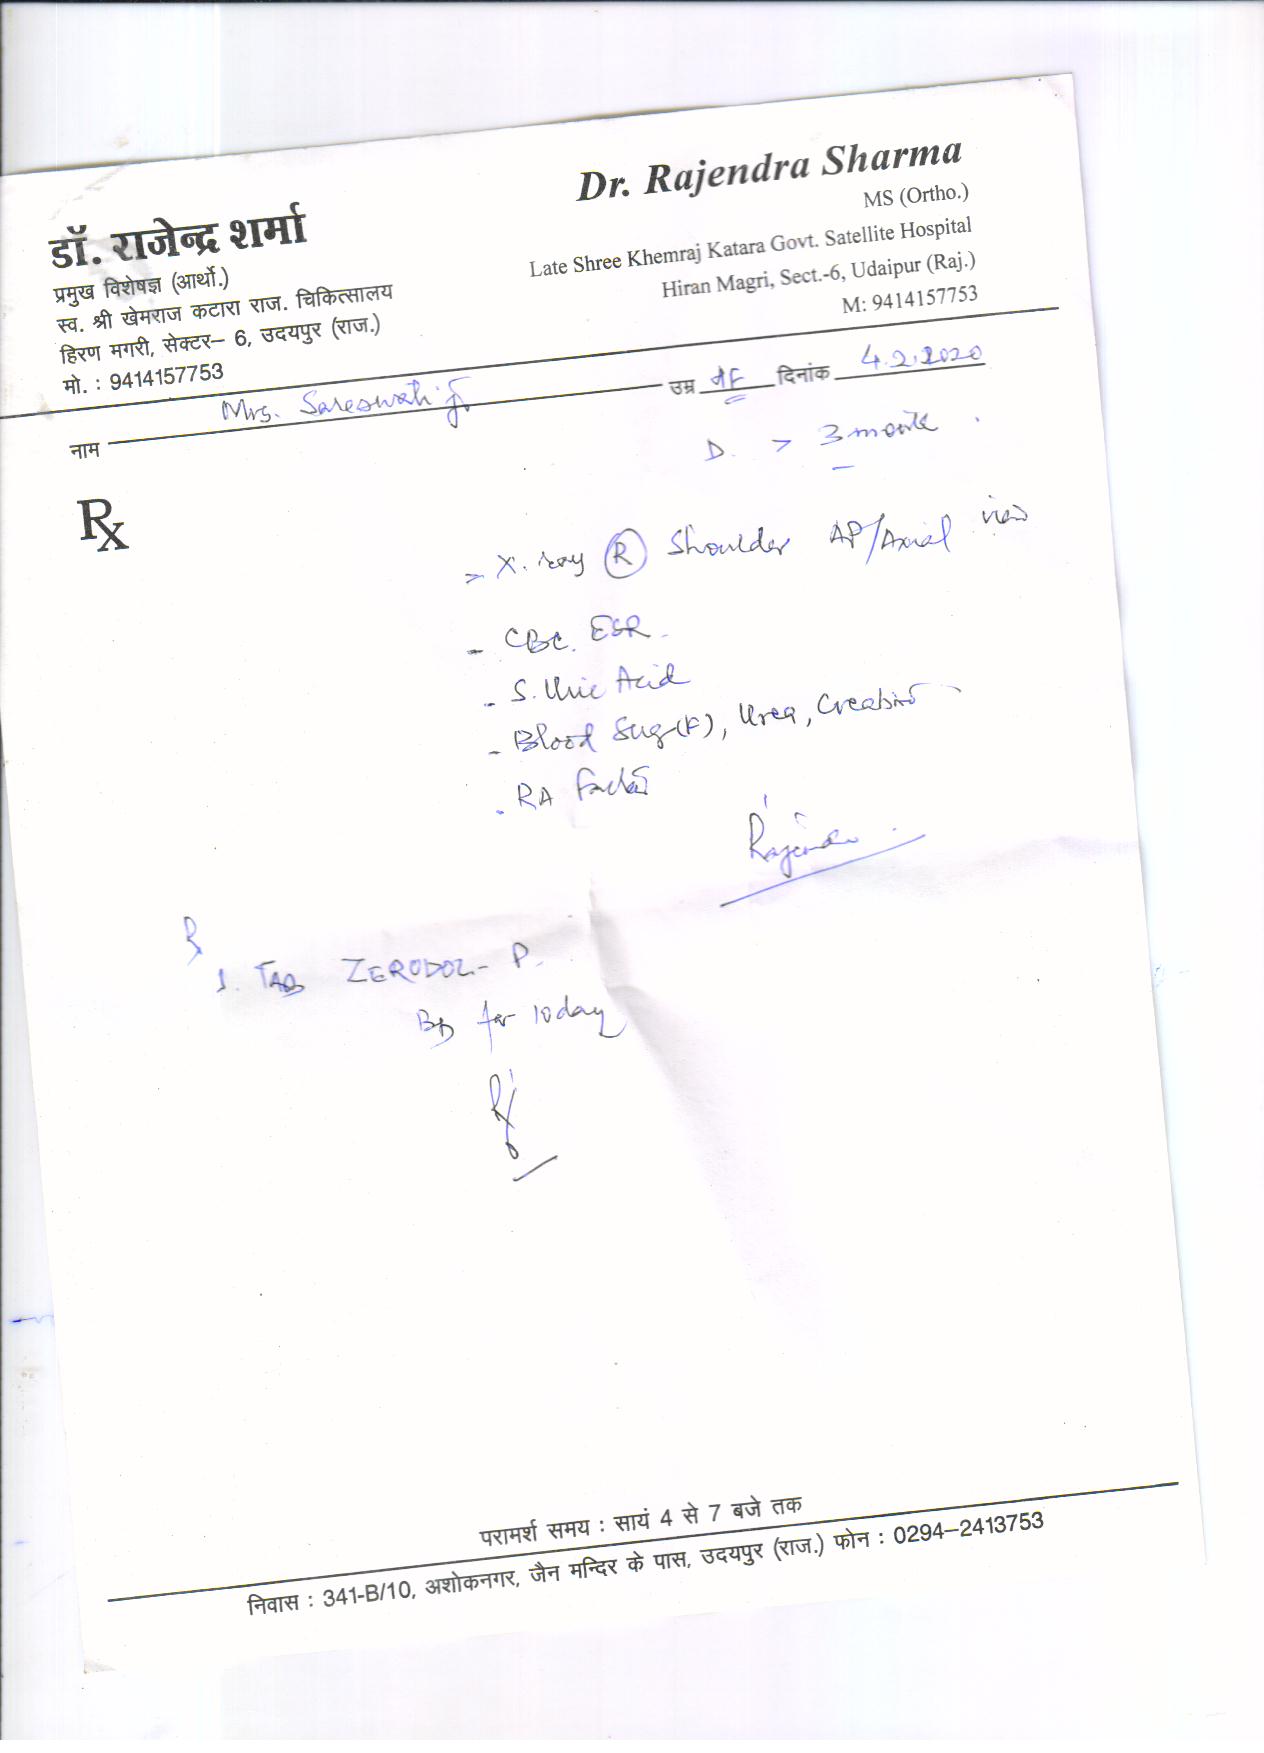 डॉ. राजेन्द्र शर्मा
प्रमुख विशेषज्ञ (आर्थो.)
स्व. श्री खेमराज कटारा राज. चिकित्सालय
हिरण मगरी, सेक्टर– 6, उदयपुर (राज.)
मो. : 9414157753
Dr. Rajendra Sharma
MS (Ortho.)
Late Shree Khemraj Katara Govt. Satellite Hospital
Hiran Magri, Sect.-6, Udaipur (Raj.)
M: 9414157753
नाम Mrs. Sareswati ji उम्र दिनांक 4.2.2020
D. > 3 month
Rx
- X.ray (R) Shoulder AP/Axial view
- CBC. ESR.
- S. Uric Acid
- Blood Sug(F), Urea, Creatin
- RA Factor
Rajendra
1. TAB ZERODOL-P.
BD for 10 day
परामर्श समय : सायं 4 से 7 बजे तक
निवास : 341-B/10, अशोकनगर, जैन मन्दिर के पास, उदयपुर (राज.) फोन : 0294–2413753